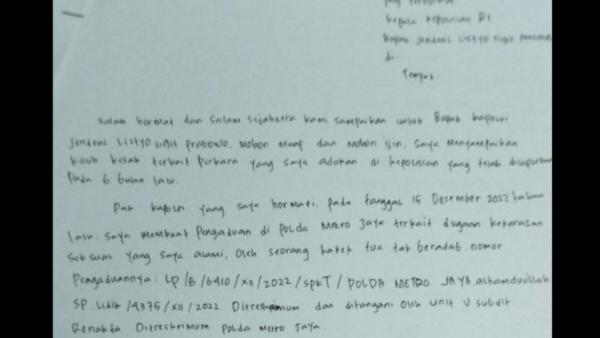 yang terhormat
kepala kepolisian RI
Bapak Jendral Listyo Sigit Prabowo
di-
Tempat
Salam hormat dan salam sejahtera kami sampaikan untuk Bapak kapolri
Jendral Listyo Sigit Prabowo. Mohon maaf dan mohon izin, saya menyampaikan
keluh kesah terkait perkara yang saya adukan di kepolisian yang telah
pada 6 bulan lalu.
Pak kapolri yang saya hormati. pada tanggal 15 Desember 2022 tahun
lalu. saya membuat pengaduan di Polda Metro Jaya terkait dugaan kekerasan
seksual yang saya alami, oleh seorang kakek tua tak beradab. nomor
Pengaduannya: LP/B/6410/XII/2022/SPKT/POLDA METRO JAYA. alhamdulillah
SP. Lidik/4375/XII/2022 Ditreskrimum dan ditangani oleh unit V subdit
Renakta Ditreskrimum Polda Metro Jaya.